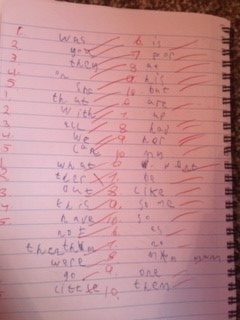 1. was 6. is
2 you 7 for
3 they 8 at
4 on 9 his
5 she 10 but
1 that 6 are
2 with 7 up
3 all 8 had
4 we 9 her
5 can 10.
1 what 6 went
2 7. be
3 out 8 like
4 this 9. some
5 have 10. so
not 6. as
then 7. no
were 8
go 9. one
little 10. them